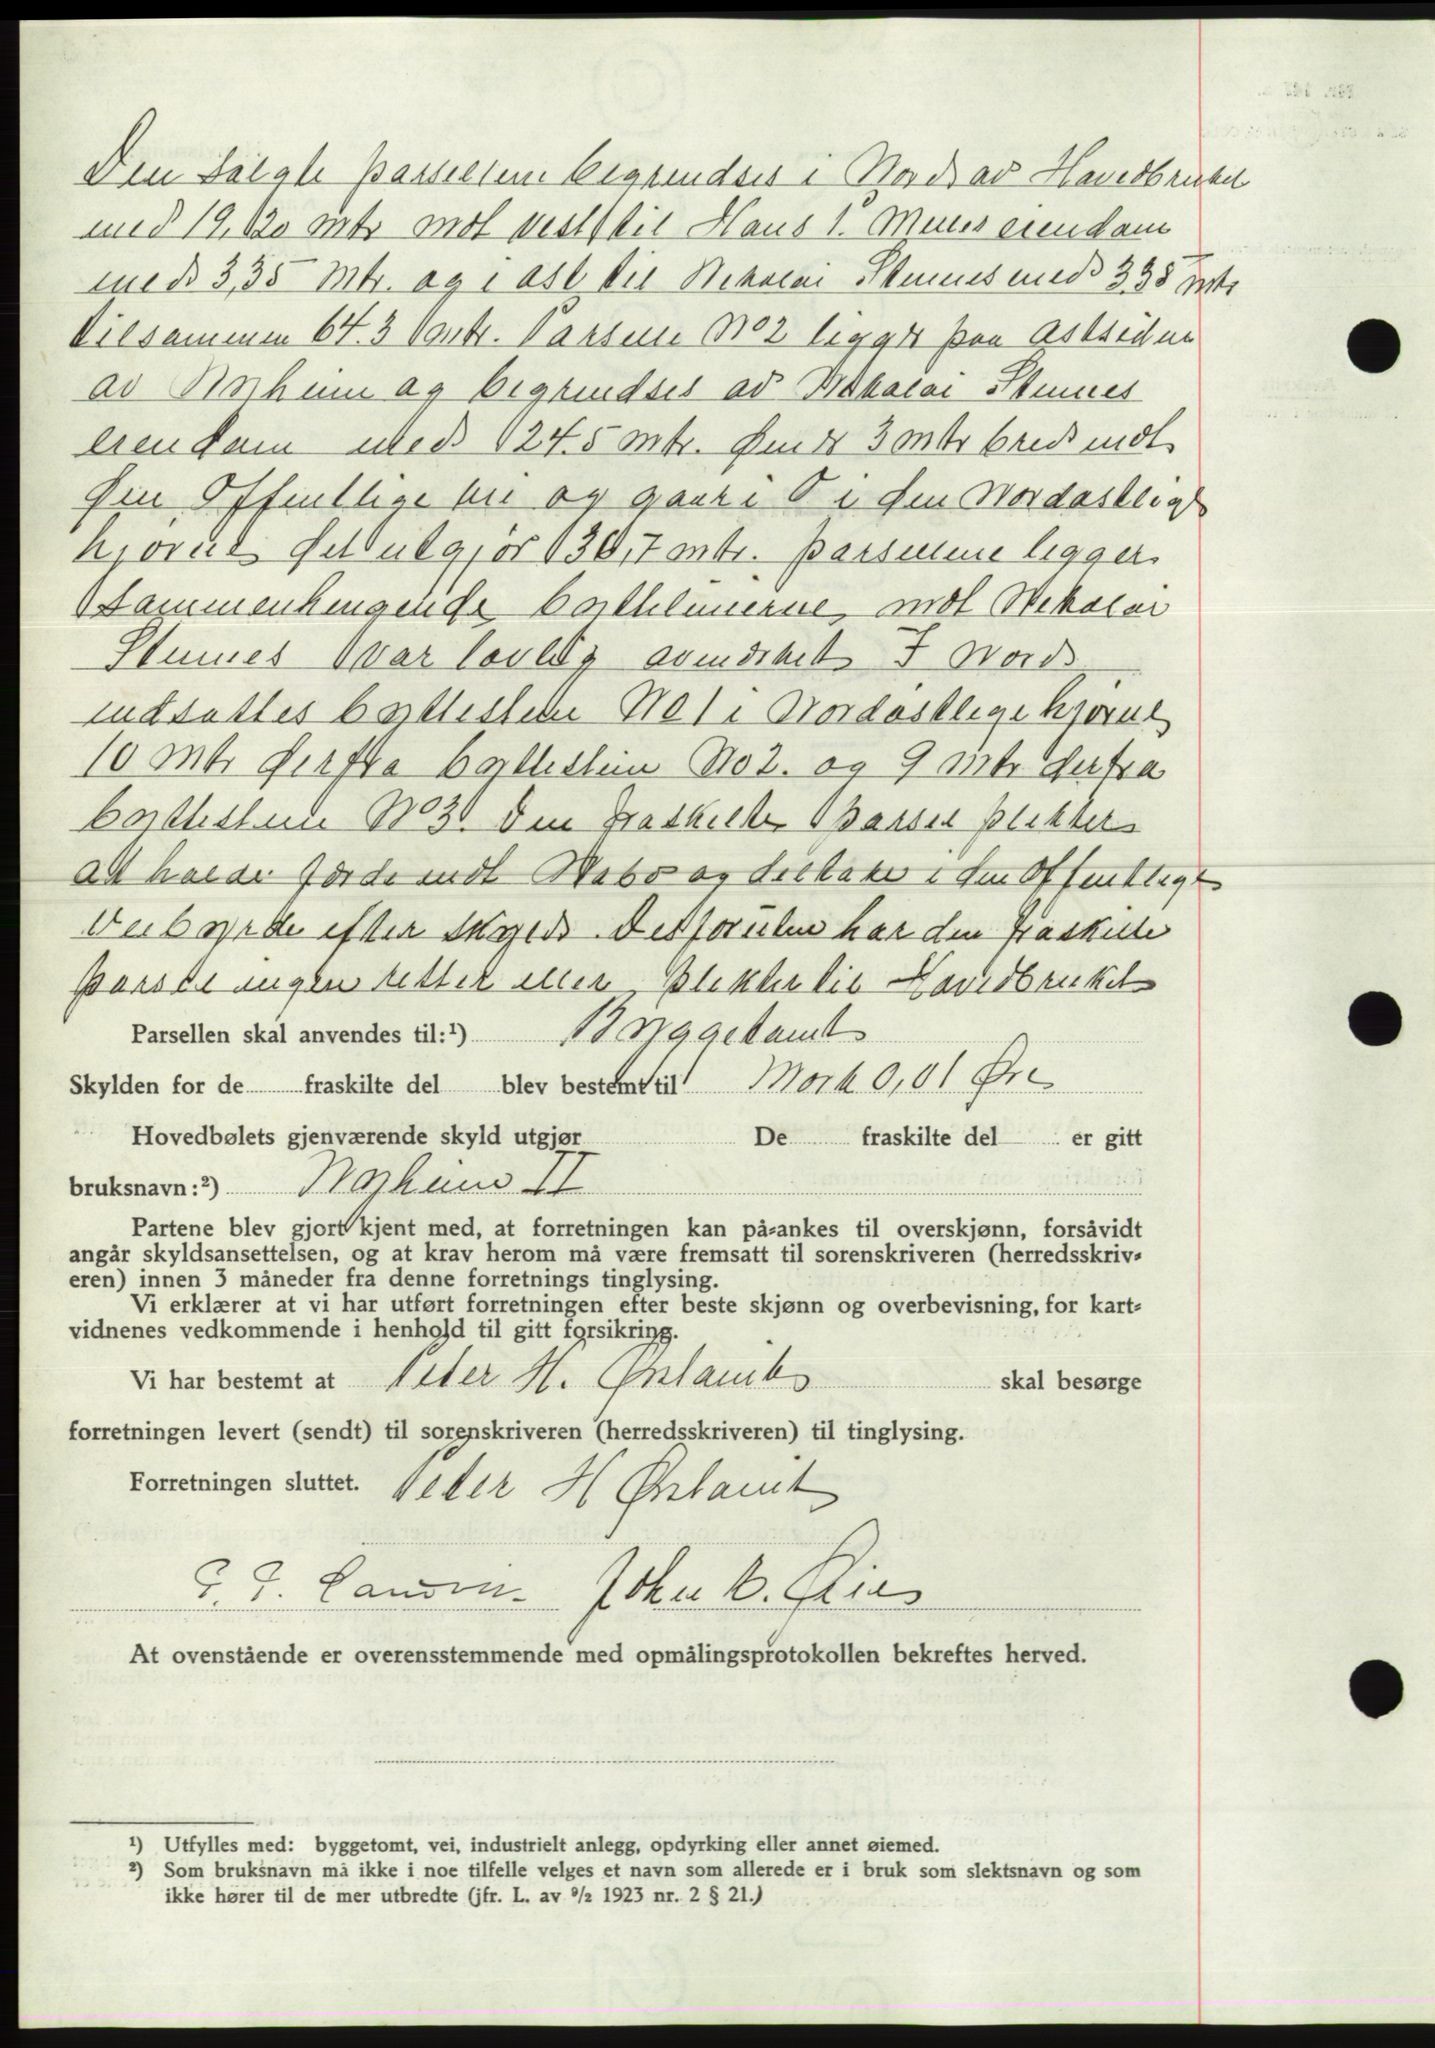 Den salgte parsellene begrendses i Nord av Hovedbruket
med 19,20 mtr mot vest til Hans P. Mulles eiendom
med 3,35 mtr. og i ost til Nikolai Stennes med 3,35 mtr
tilsammen 64.3 mtr. Parselle No 2 ligger paa ostsiden
av Nyheim og begrendses av Nikolai Stennes
eiendom med 24.5 mtr. Den er 3 mtr bred mot
den Offentlige vei og gaar i 0 i den Nordostlige
hjørne det utgjør 36,7 mtr. parsellene ligger
sammenhengende byttelinierne mot Nikolai
Stennes var lovlig avmerket I Nord
indsattes byttesten No 1 i Nordøstlige hjørne
10 mtr derfra byttestein No 2. og 9 mtr derfra
byttestene No 3. Den fraskilte parsel plikter
at holde jorde mot Nabo og deltake i den Offentlige
veibyrde efter skyld. Desforuten har den fraskilte
parsel ingen retter eller plikter til Hovedbruket
Parsellen skal anvendes til:¹) Byggetomt
Skylden for de fraskilte del blev bestemt til Mark 0,01 Øre
Hovedbølets gjenværende skyld utgjør De fraskilte del er gitt
bruksnavn:²) Nyheim II
Partene blev gjort kjent med, at forretningen kan på-ankes til overskjønn, forsåvidt
angår skyldsansettelsen, og at krav herom må være fremsatt til sorenskriveren (herredsskriv-
eren) innen 3 måneder fra denne forretnings tinglysing.
Vi erklærer at vi har utført forretningen efter beste skjønn og overbevisning, for kart-
vidnenes vedkommende i henhold til gitt forsikring.
Vi har bestemt at Peter H. Ørstavik skal besørge
forretningen levert (sendt) til sorenskriveren (herredsskriveren) til tinglysing.
Forretningen sluttet. Peter H Ørstavik
John
At ovenstående er overensstemmende med opmålingsprotokollen bekreftes herved.
¹) Utfylles med: byggetomt, vei, industrielt anlegg, opdyrking eller annet øiemed.
²) Som bruksnavn må ikke i noe tilfelle velges et navn som allerede er i bruk som slektsnavn og som
ikke hører til de mer utbredte (jfr. L. av ⁹/₂ 1923 nr. 2 § 21.)